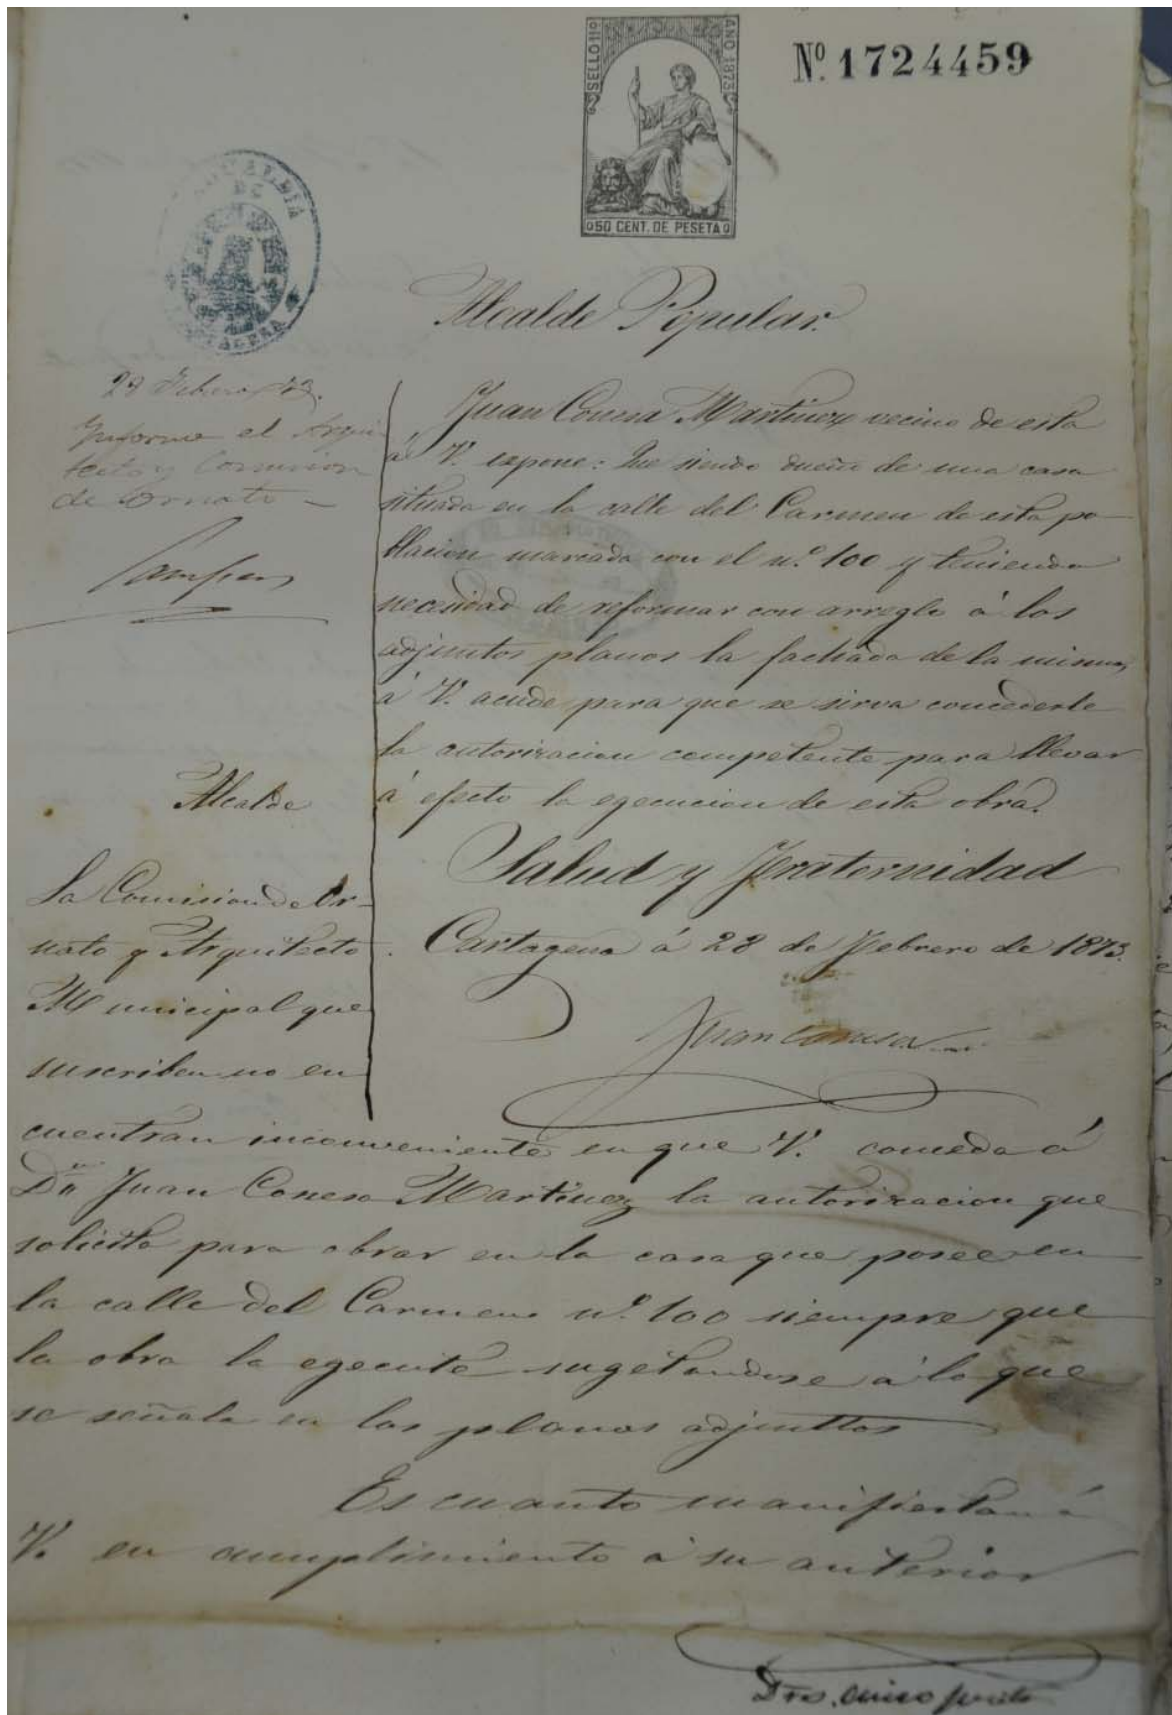 SELLO 11º
AÑO 1873
50 CENT. DE PESETA
Nº 1724459
ALCALDIA
DE
CARTAGENA
Alcalde Popular.
Juan Conesa Martinez vecino de esta
á V. expone: Que siendo dueño de una casa
situada en la calle del Carmen de esta po-
blacion marcada con el nº 100 y teniendo
necesidad de reformar con arreglo á los
adjuntos planos la fachada de la misma,
á V. acude para que se sirva concederle
la autorizacion competente para llevar
á efecto la egecucion de esta obra.
Salud y Fraternidad
Cartagena á 28 de Febrero de 1873.
Juan Conesa
29 Febrero 73.
Informe el Arqui
tecto y Comision
de Ornato –
Alcalde
La Comision de Or-
nato y Arquitecto
Municipal que
suscriben no en
cuentran inconveniente en que V. conceda á
Dn Juan Conesa Martinez la autorizacion que
solicita para obrar en la casa que posee en
la calle del Carmen nº 100 siempre que
la obra la egecute sugetandose á lo que
se señala en los planos adjuntos
Es cuanto manifiestan á
V. en cumplimiento á su anterior